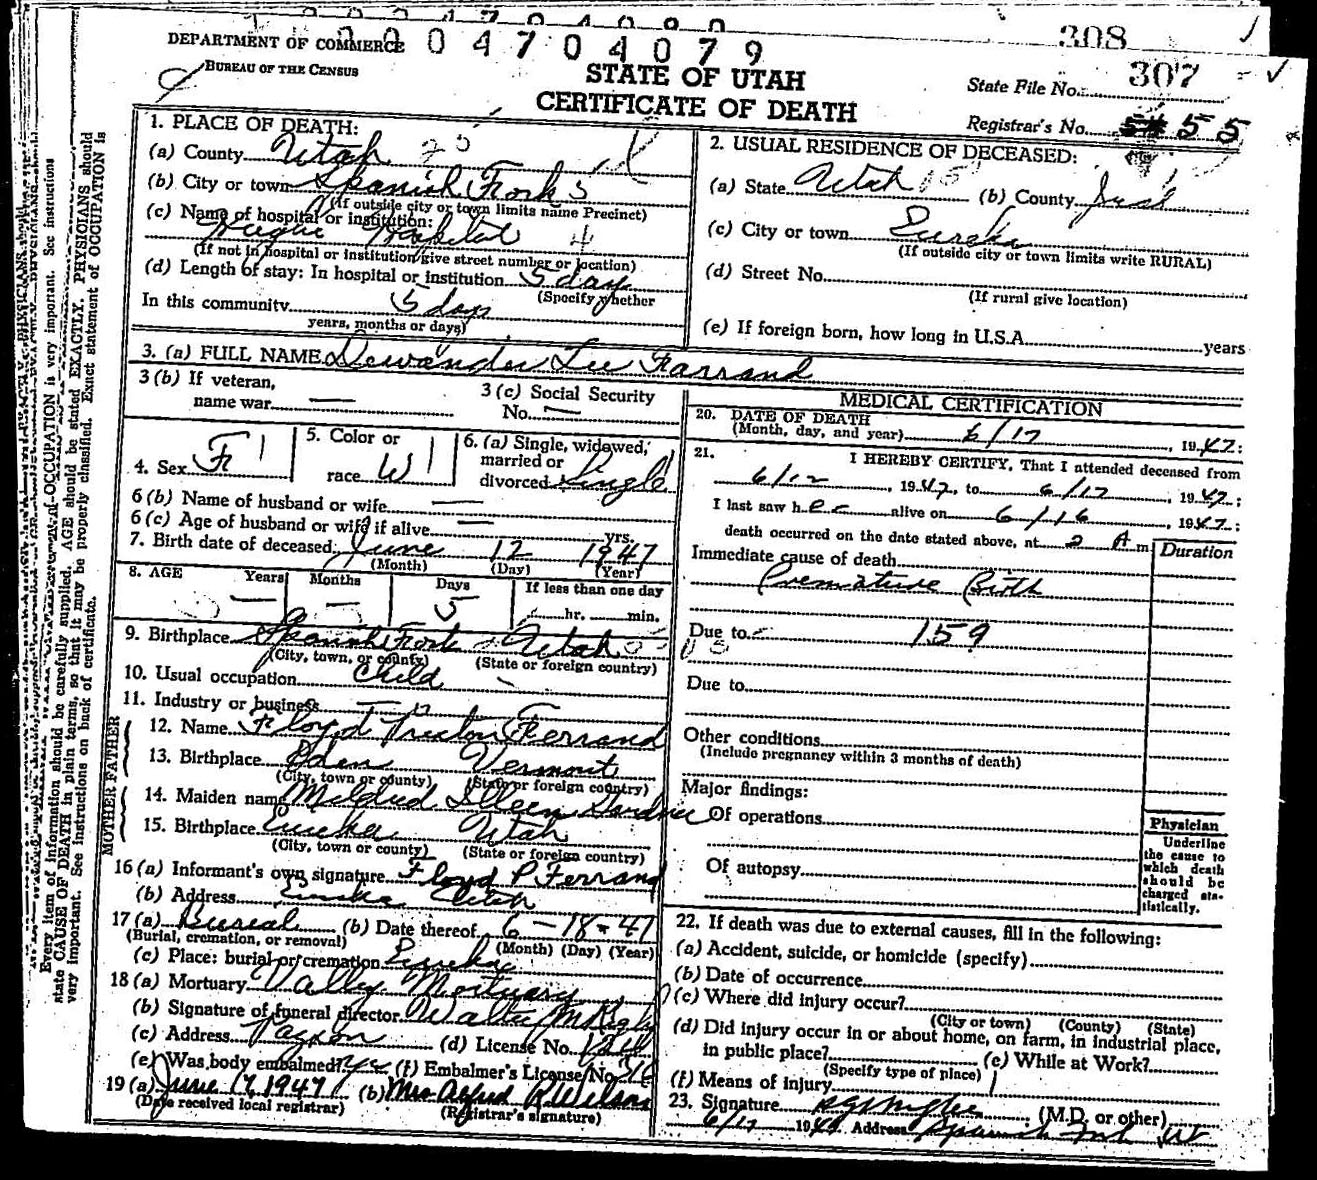 0 0 4 7 0 4 0 7 9
308
DEPARTMENT OF COMMERCE
BUREAU OF THE CENSUS
STATE OF UTAH
CERTIFICATE OF DEATH
State File No. 307
Registrar's No. 55
1. PLACE OF DEATH:
(a) County Utah 25
(b) City or town Spanish Fork 5
(If outside city or town limits name Precinct)
(c) Name of hospital or institution:
Hughes Hospital 4
(If not in hospital or institution give street number or location)
(d) Length of stay: In hospital or institution 5 day
(Specify whether
In this community 5 days
years, months or days)
2. USUAL RESIDENCE OF DECEASED:
(a) State Utah (b) County Juab
(c) City or town Eureka
(If outside city or town limits write RURAL)
(d) Street No.
(If rural give location)
(e) If foreign born, how long in U.S.A. years
3. (a) FULL NAME Lee Farrand
3 (b) If veteran, name war —
3 (c) Social Security No. —
4. Sex F
5. Color or race W
6. (a) Single, widowed, married or divorced Single
6 (b) Name of husband or wife —
6 (c) Age of husband or wife if alive — yrs.
7. Birth date of deceased: June 12 1947
(Month) (Day) (Year)
8. AGE Years — Months — Days 5 If less than one day hr. min.
9. Birthplace Spanish Fork Utah
(City, town, or county) (State or foreign country)
10. Usual occupation Child
11. Industry or business —
FATHER
12. Name Floyd Preston Ferrand
13. Birthplace Eden Vermont
(City, town or county) (State or foreign country)
MOTHER
14. Maiden name Mildred Illeen Gardner
15. Birthplace Eureka Utah
(City, town or county) (State or foreign country)
16 (a) Informant's own signature Floyd P Ferrand
(b) Address Eureka Utah
17 (a) Bureal (b) Date thereof 6-18-47
(Burial, cremation, or removal) (Month) (Day) (Year)
(c) Place: burial or cremation Eureka
18 (a) Mortuary Vally Mortuary
(b) Signature of funeral director Walter
(c) Address Payson (d) License No.
(e) Was body embalmed? yes (f) Embalmer's License No.
19 (a) June 17, 1947 (b) Mrs Alfred R Wilson
(Date received local registrar) (Registrar's signature)
MEDICAL CERTIFICATION
20. DATE OF DEATH
(Month, day, and year) 6/17, 1947:
21. I HEREBY CERTIFY, That I attended deceased from
6/12, 1947, to 6/17, 1947;
I last saw her alive on 6/16, 1947;
death occurred on the date stated above, at 2 A m.
Duration
Immediate cause of death
Premature Birth
Due to 159
Due to
Other conditions
(Include pregnancy within 3 months of death)
Major findings:
Of operations
Of autopsy
Physician
Underline
the cause to
which death
should be
charged sta-
tistically.
22. If death was due to external causes, fill in the following:
(a) Accident, suicide, or homicide (specify)
(b) Date of occurrence
(c) Where did injury occur?
(City or town) (County) (State)
(d) Did injury occur in or about home, on farm, in industrial place,
in public place? (e) While at Work?
(Specify type of place)
(f) Means of injury
23. Signature (M.D. or other)
6/17 1947 Address Spanish Fork Ut
Every item of information should be carefully supplied. AGE should be stated EXACTLY. PHYSICIANS should
state CAUSE OF DEATH in plain terms, so that it may be properly classified. Exact statement of OCCUPATION is
very important. See instructions on back of certificate.